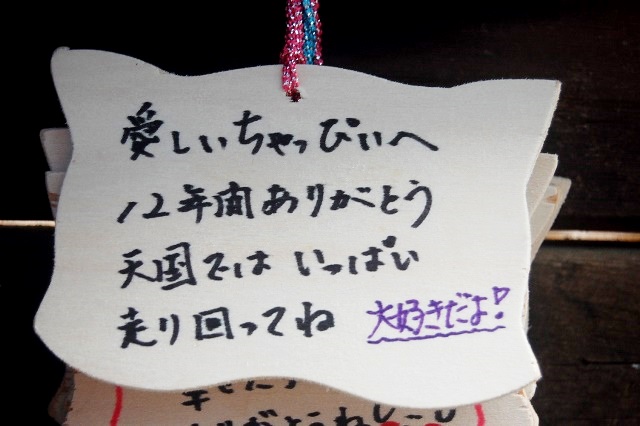 愛しいちゃっぴぃへ
12年間ありがとう
天国では いっぱい
走り回ってね 大好きだよ!